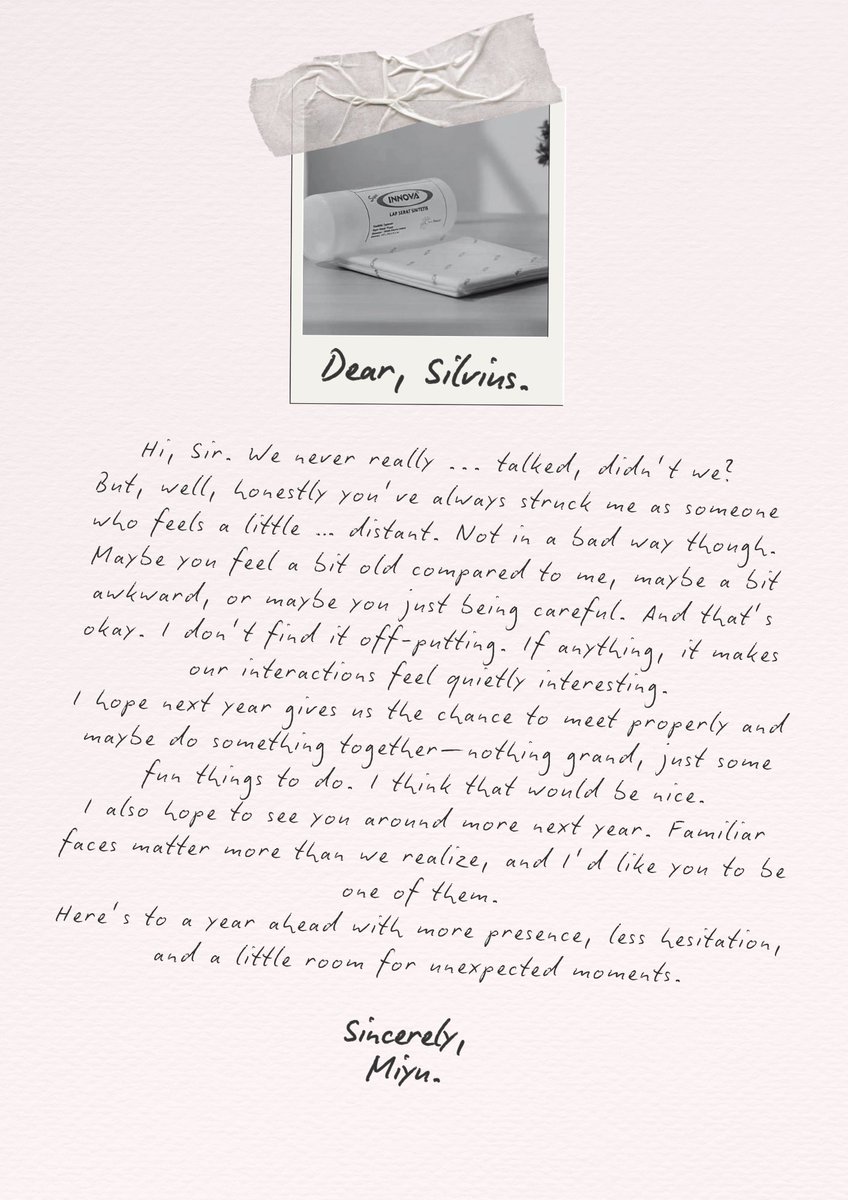 INNOVA
LAP SERAT SINTETIS
Dear, Silvius.
Hi, Sir. We never really ... talked, didn't we?
But, well, honestly you've always struck me as someone
who feels a little ... distant. Not in a bad way though.
Maybe you feel a bit old compared to me, maybe a bit
awkward, or maybe you just being careful. And that's
okay. I don't find it off-putting. If anything, it makes
our interactions feel quietly interesting.
I hope next year gives us the chance to meet properly and
maybe do something together—nothing grand, just some
fun things to do. I think that would be nice.
I also hope to see you around more next year. Familiar
faces matter more than we realize, and I'd like you to be
one of them.
Here's to a year ahead with more presence, less hesitation,
and a little room for unexpected moments.
Sincerely,
Miyu.